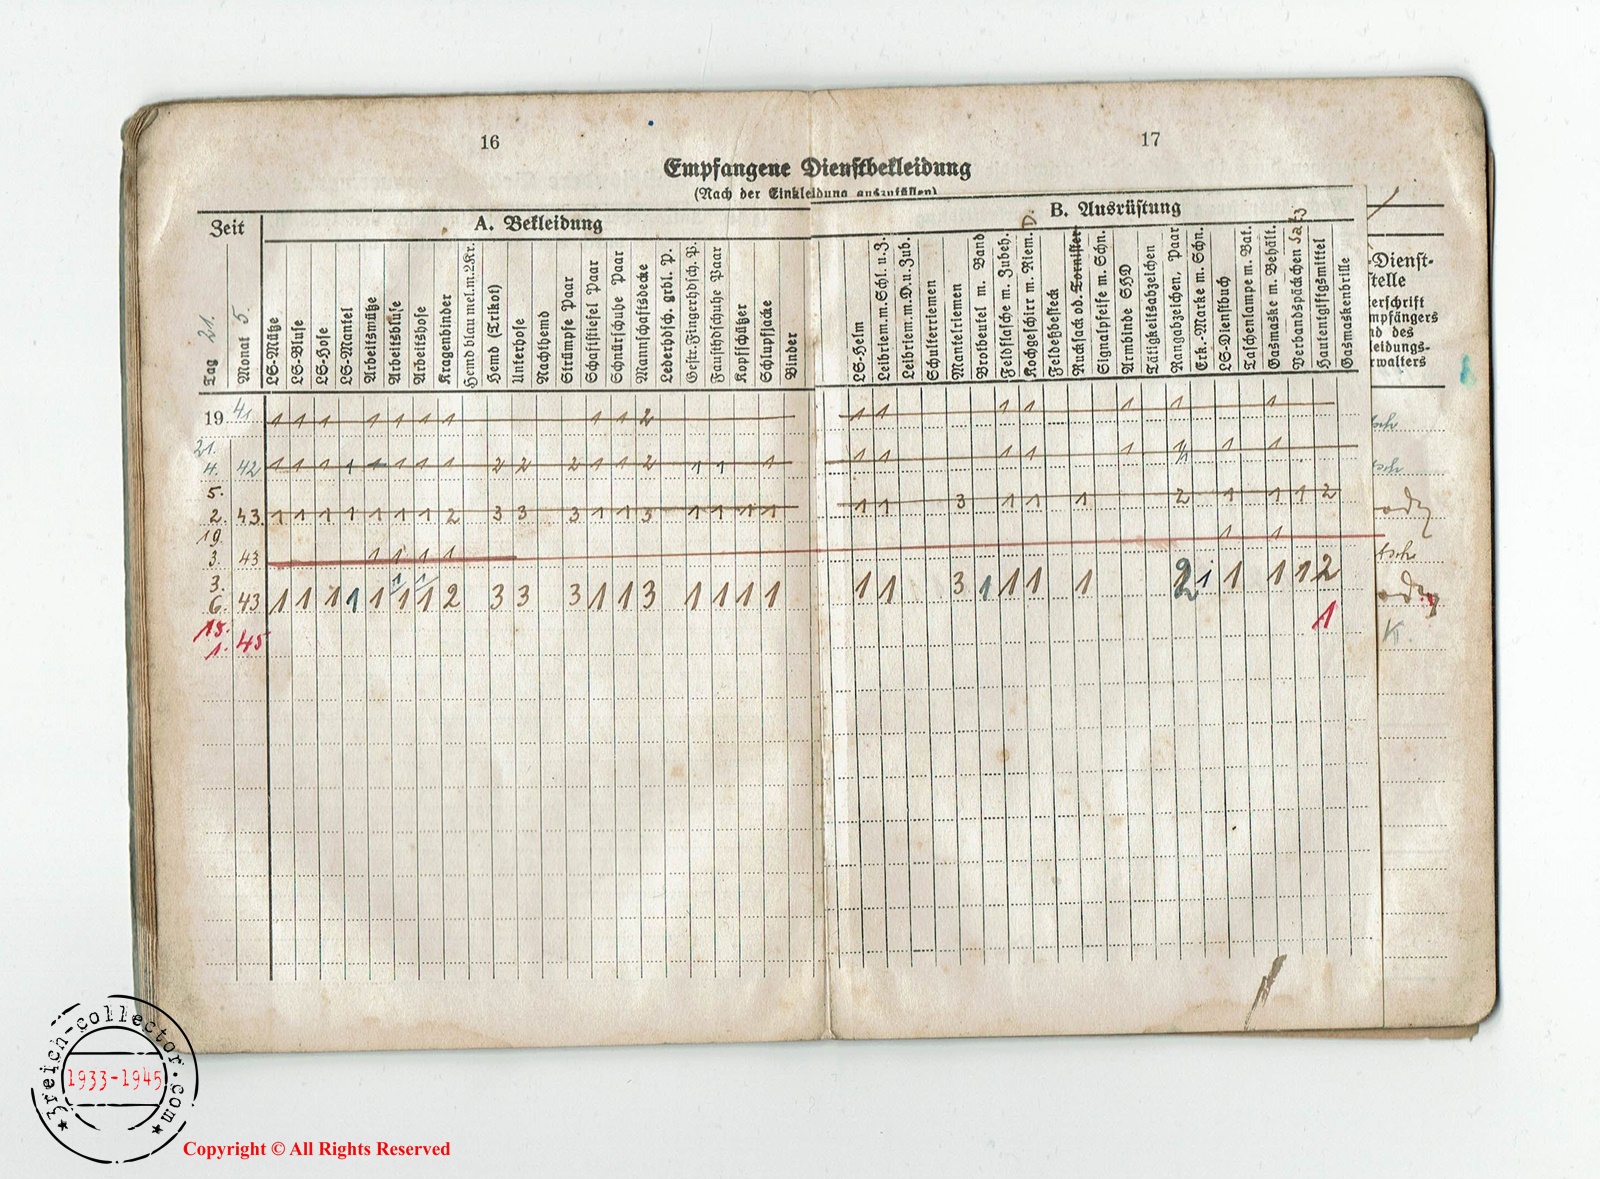 16
17
Empfangene Dienstbekleidung
(Nach der Einkleidung auszufüllen)
Zeit
A. Bekleidung
B. Ausrüstung
Tag 21.
Monat 5.
LS-Mütze
LS-Bluse
LS-Hose
LS-Mantel
Arbeitsmütze
Arbeitsbluse
Arbeitshose
Kragenbinder
Hemd blau mel. m. 2 Kr.
Hemd (Trikot)
Unterhose
Nachthemd
Strümpfe Paar
Schaftstiefel Paar
Schnürschuhe Paar
Mannschaftsdecke
Lederhdsch. grbl. P.
Gestr. Fingerhdsch. P.
Fausthdschuhe Paar
Kopfschützer
Schlupfjacke
Binder
LS-Helm
Leibriem. m. Schl. u. Z.
Leibriem. m. D. u. Zub.
Schulterriemen
Mantelriemen
Brotbeutel m. Band
Feldflasche m. Zubeh.
Kochgeschirr m. Riem. D.
Feldeßbesteck
Rucksack od. Tornister
Signalpfeife m. Schn.
Armbinde SHD
Tätigkeitsabzeichen
Rangabzeichen, Paar
Erk.-Marke m. Schn.
LS-Dienstbuch
Taschenlampe m. Bat.
Gasmaske m. Behält.
Verbandspäckchen Satz
Hautentgiftgsmittel
Gasmaskenbrille
-Dienst-
telle
erschrift
mpfängers
nd des
leidungs-
rwalters
19 41 1 1 1 1 1 1 1 1 1 2 1 1 1 1 1 1 1
21.
4. 42 1 1 1 1 1 1 1 1 2 2 2 1 1 2 1 1 1 1 1 1 1 1 1 1 1
5.
2. 43. 1 1 1 1 1 1 1 2 3 3 3 1 1 3 1 1 1 1 1 1 3 1 1 1 2 1 1 1 2
19.
3. 43 1 1 1 1 1 1
3. 1 1
6. 43 1 1 1 1 1 1 1 2 3 3 3 1 1 3 1 1 1 1 1 1 3 1 1 1 1 2 1 1 1 1 2
15.
1. 45 1
K.
3reich-collector.com
1933-1945
Copyright © All Rights Reserved